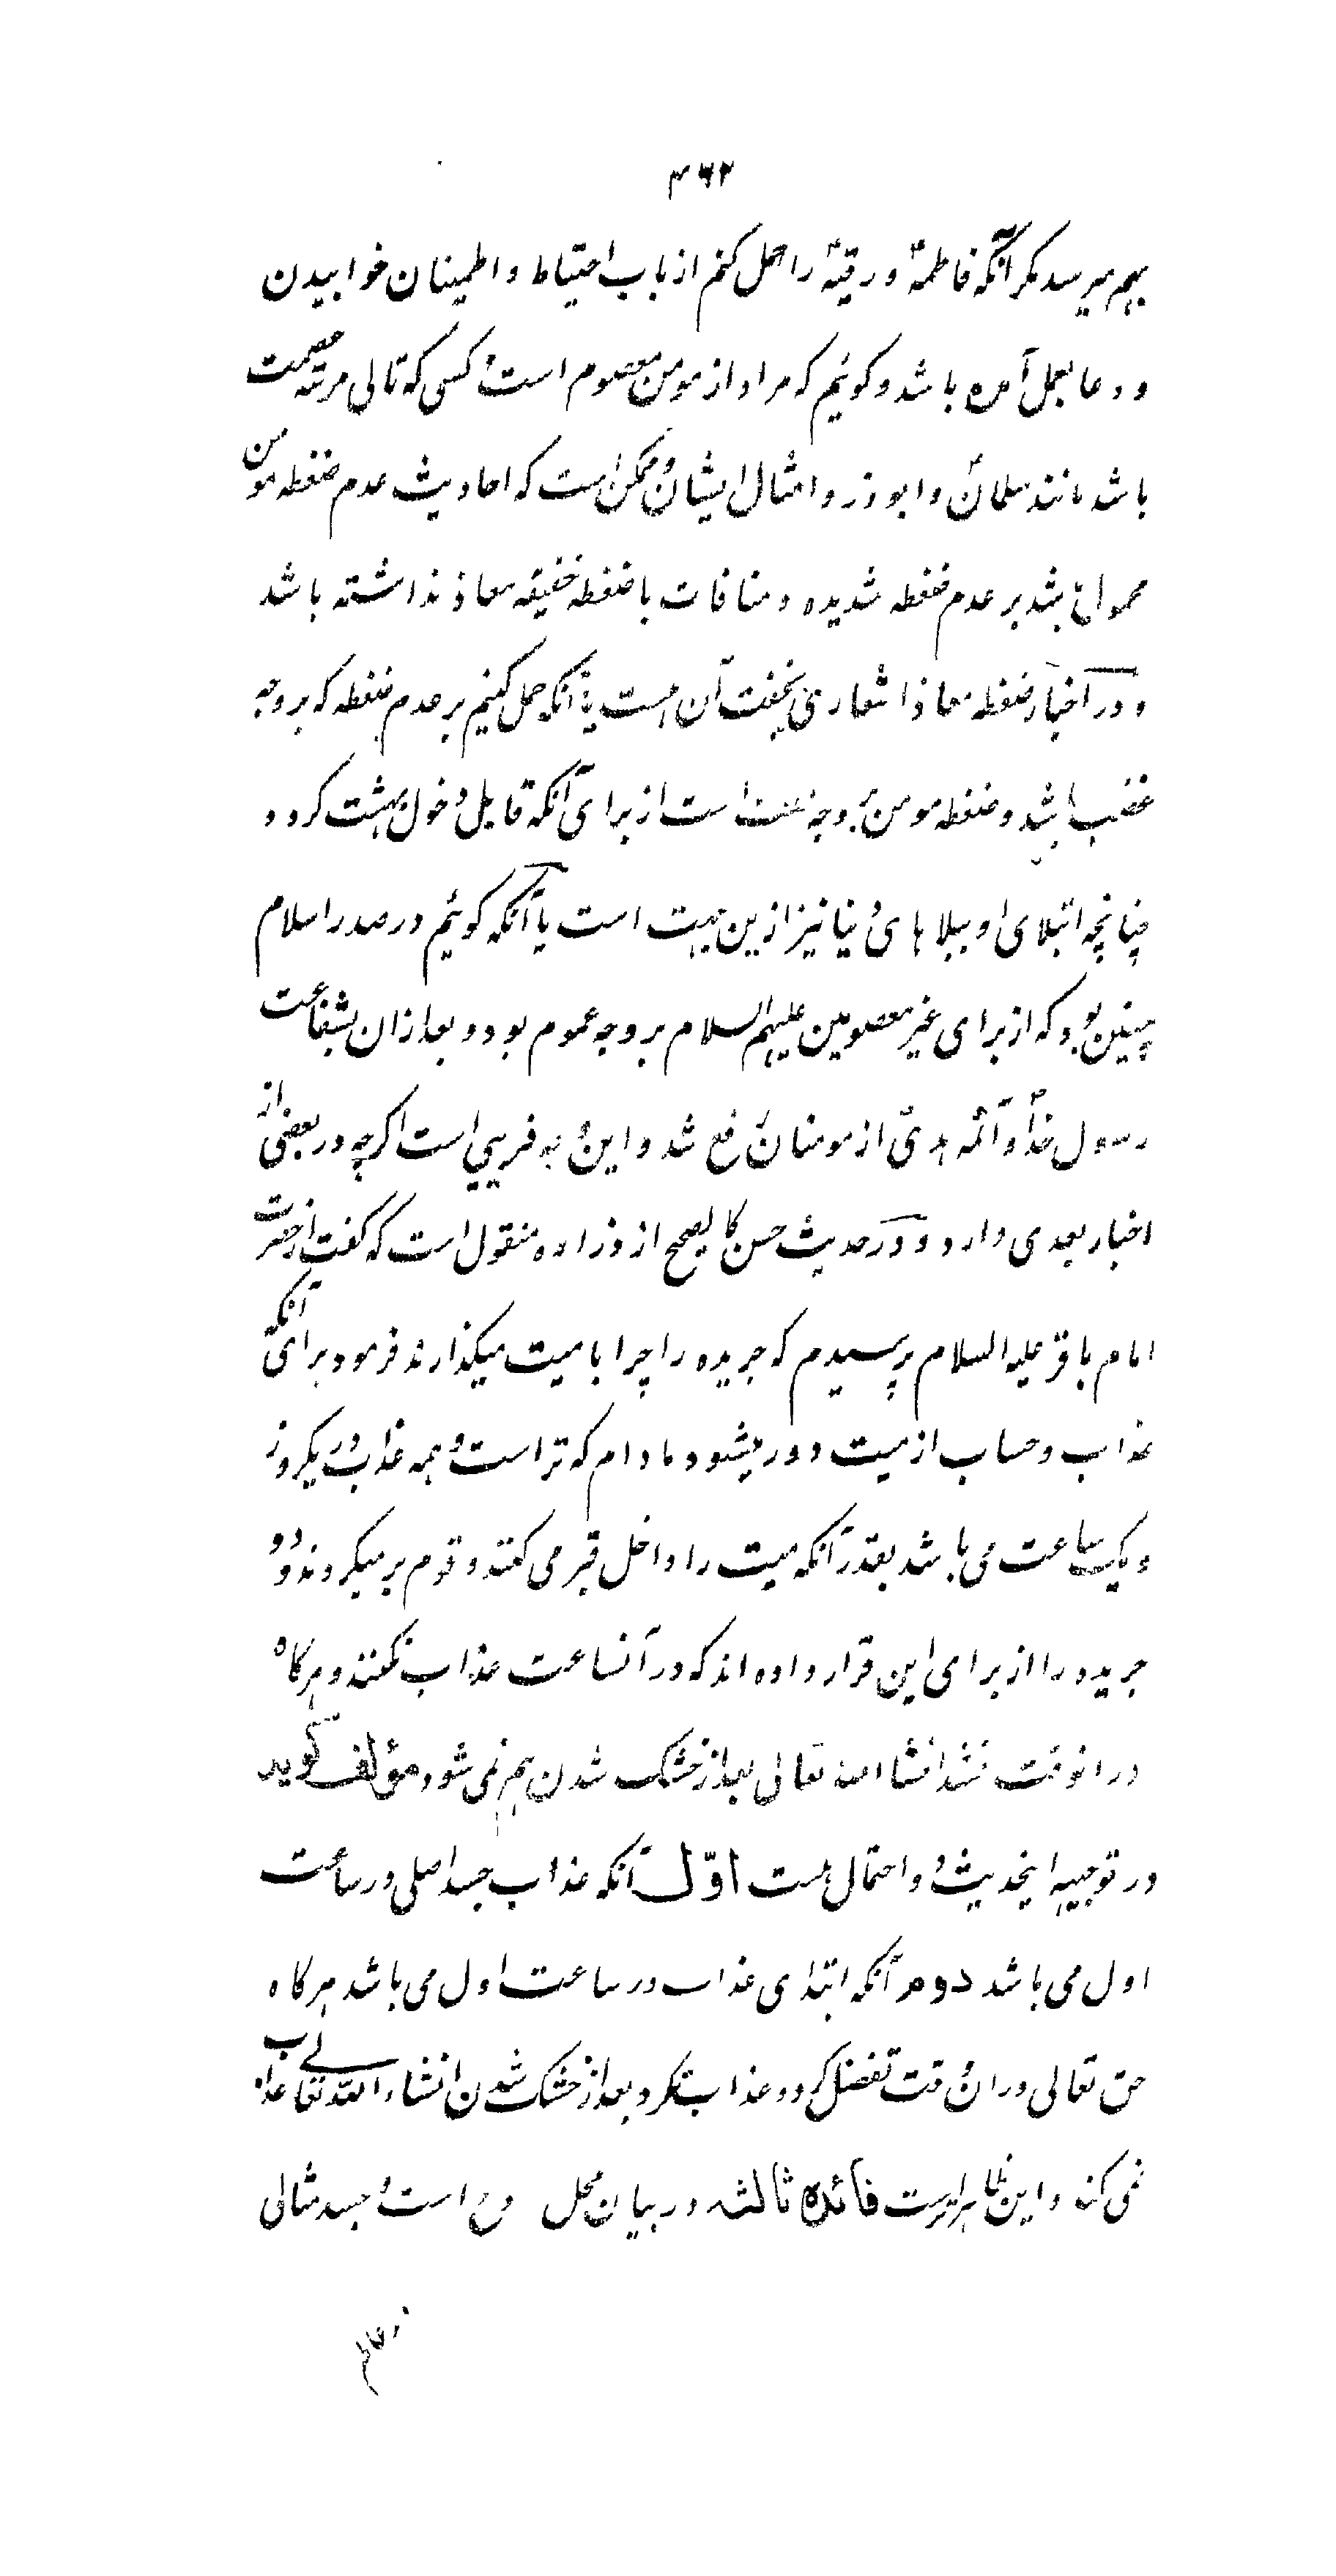 ۴۶۲
بهم میرسد مکر آنکه فاطمهٔ و رقیهٔ را حمل کنم از باب احتیاط و اطمینان خوابیدن
و دعا بعمل آمده باشد و کوئیم که مراد از مومن معصوم است و کسی که تالی مرتبه عصمت
باشد مانند سلمان و ابوذر و امثال ایشان و ممکن است که احادیث عدم ضغطه مومن
محمول باشد بر عدم ضغطه شدیده و منافات با ضغطه خفیفه معاذ نداشته باشد
و در اخبار ضغطه معاذ اشعاری بخفت آن هست یا آنکه حمل کنیم بر عدم ضغطه که بر وجه
غضب باشد و ضغطه مومن بر وجه است از برای آنکه قابل دخول بهشت کردد
چنانچه ابتلای او ببلاهای دنیا نیز ازین جهت است یا آنکه کوئیم در صدر اسلام
چنین بود که از برای غیر معصومین علیهم السلام بر وجه عموم بود و بعد ازان بشفاعت
رسول خدا و آئمه هدی از مومنان رفع شد و این وجه قریبی است اکرچه در بعضی از
اخبار بعدی دارد و در حدیث حسن کالصحیح از زراره منقول است که کفت از حضرت
امام باقر علیه السلام پرسیدم که جریده را چرا با میت میکذارند فرمود برای آنکه
عذاب و حساب از میت دور میشود مادام که تر است و همه عذاب در یکروز
و یک ساعت می باشد بقدر آنکه میت را داخل قبر می کنند و قوم بر میکردند و دو
جریده را از برای این قرار داده اند که در آنساعت عذاب نکنند و هرکاه
در انوقت نشد انشا الله تعالی بعد از خشک شدن هم نمی شود مؤلف کوید
در توجیه اینحدیث دو احتمال هست اوّل آنکه عذاب جسد اصلی در ساعت
اول می باشد دوم آنکه ابتدای عذاب در ساعت اول می باشد هرکاه
حق تعالی در ان وقت تفضل کرد و عذاب نکرد بعد از خشک شدن انشاء الله تعالی عذاب
نمی کند و این ظاهرتر است فائده ثالثه در بیان محل روح است و جسد مثالی